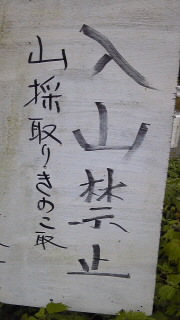 入山禁止
山採取り・きのこ取